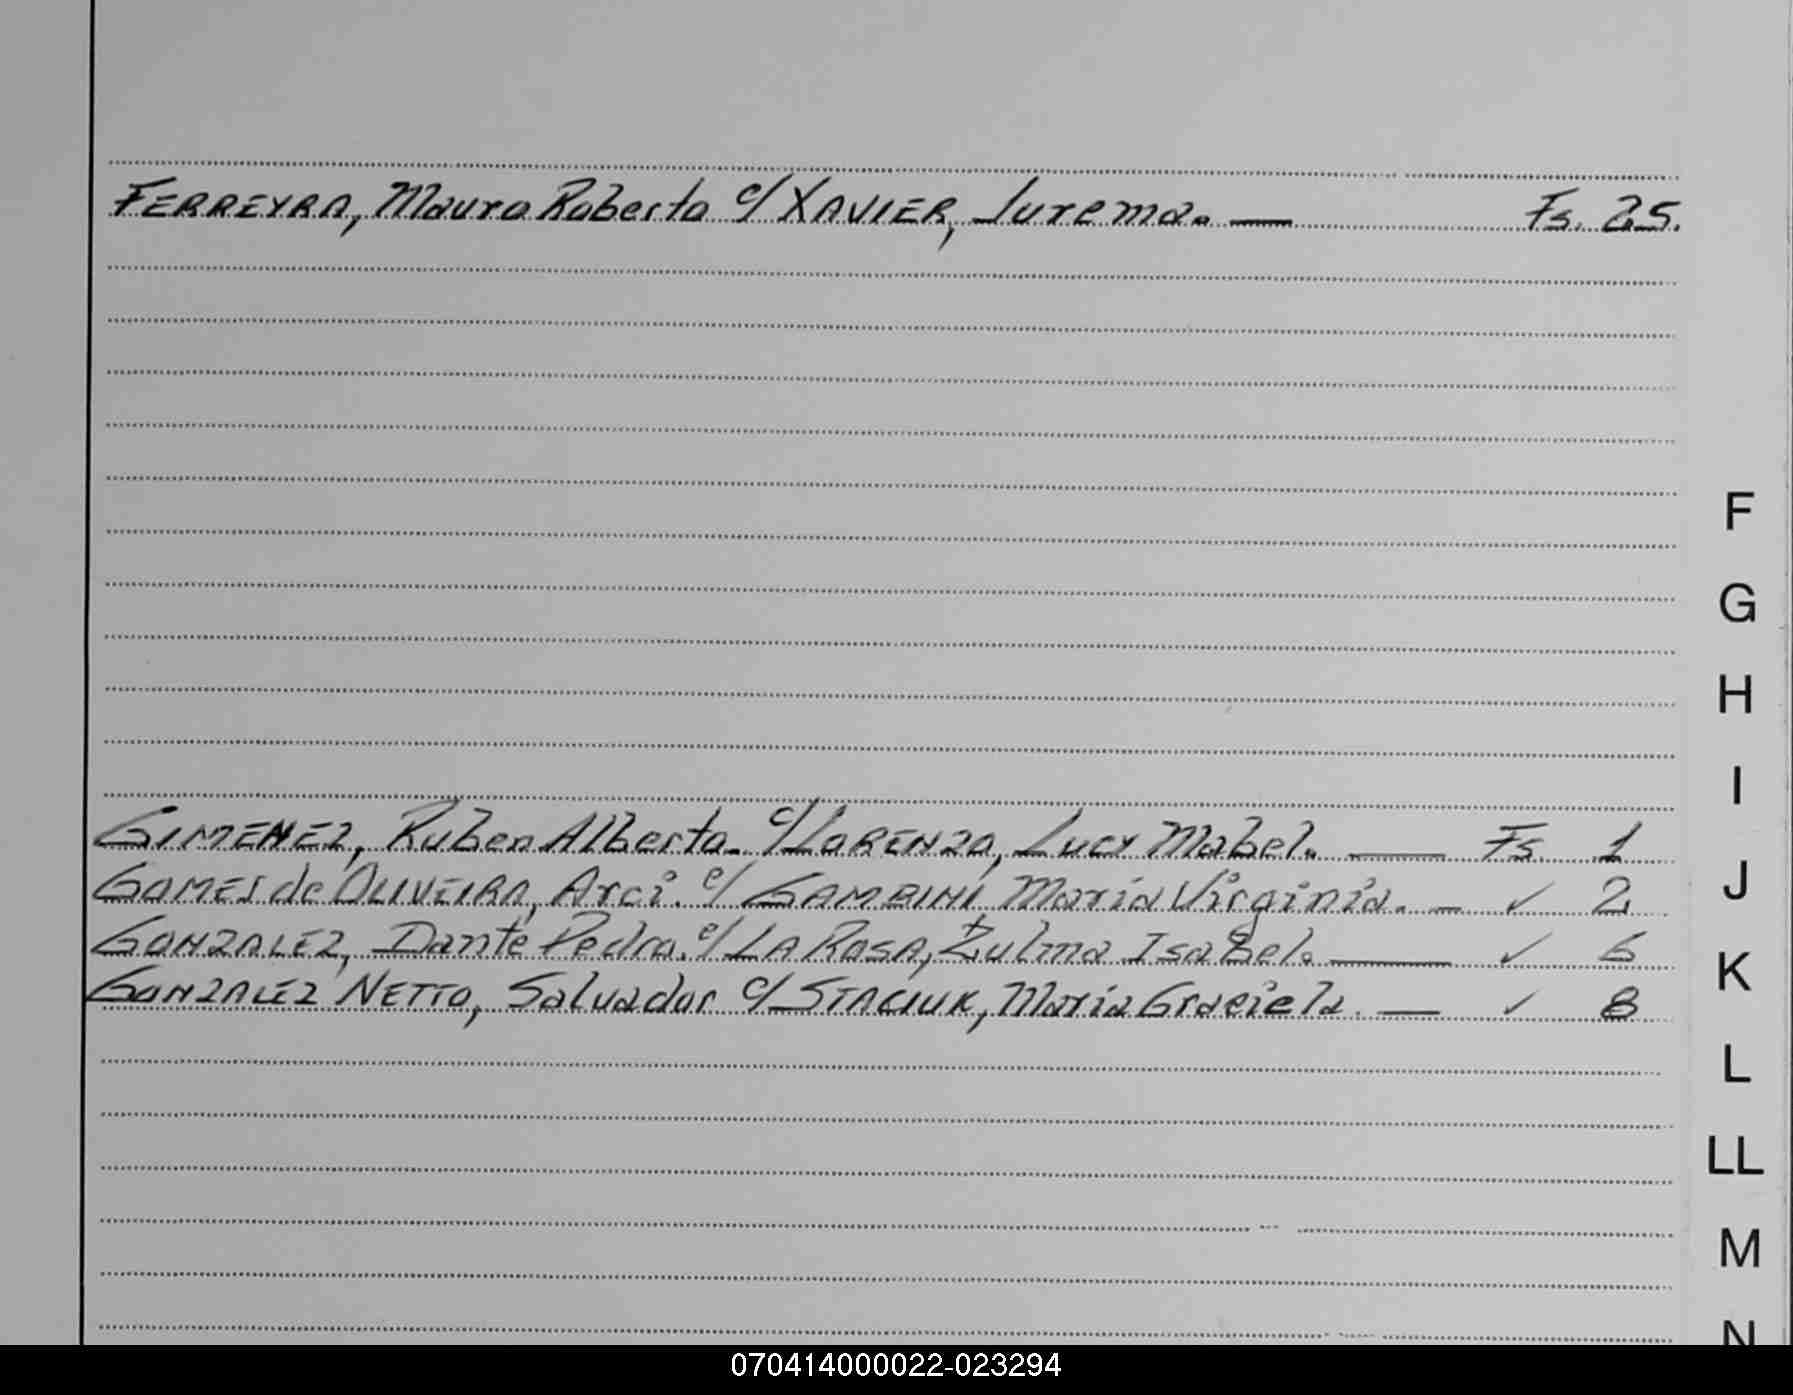 FERREYRA, Mauro Roberto c/ XAVIER, Jurema. — Fs. 25.
F
G
H
I
GIMENEZ, Ruben Alberto. c/ LORENZO, Lucy Mabel. — Fs. 1
J
GOMES de OLIVEIRA, Arci. c/ GAMBINI Maria Virginia. — ✓ 2
GONZALEZ, Dante Pedro. c/ LA ROSA, Zulma Isabel. — ✓ 6
K
GONZALEZ NETTO, Salvador c/ STACIUK, Maria Graciela. — ✓ 8
L
LL
M
N
070414000022-023294